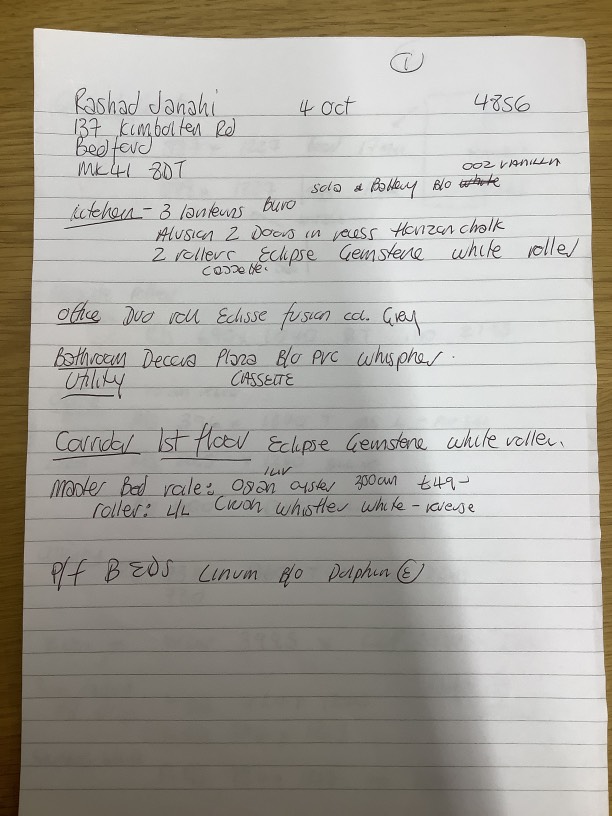 1
Rashad Janahi 4 Oct 4856
137 Kimbolton Rd
Bedford
MK41 8DT
002 VANILLA
solo & Battery B/o white
Kitchen - 3 lanterns Buro
Alusion 2 Doors in recess Horizon chalk
2 rollers Eclipse Gemstone white roller
cassette.
Office Duo roll Eclisse fusion col. Grey
Bathroom Decora Plaza B/o PVC whispher.
Utility CASSETTE
Corridor 1st floor Eclipse Gemstone white roller.
Master Bed oyster 300cm £49-
roller: L/L whistler white - reverse
P/f BEDS Linum B/o Dolphin E